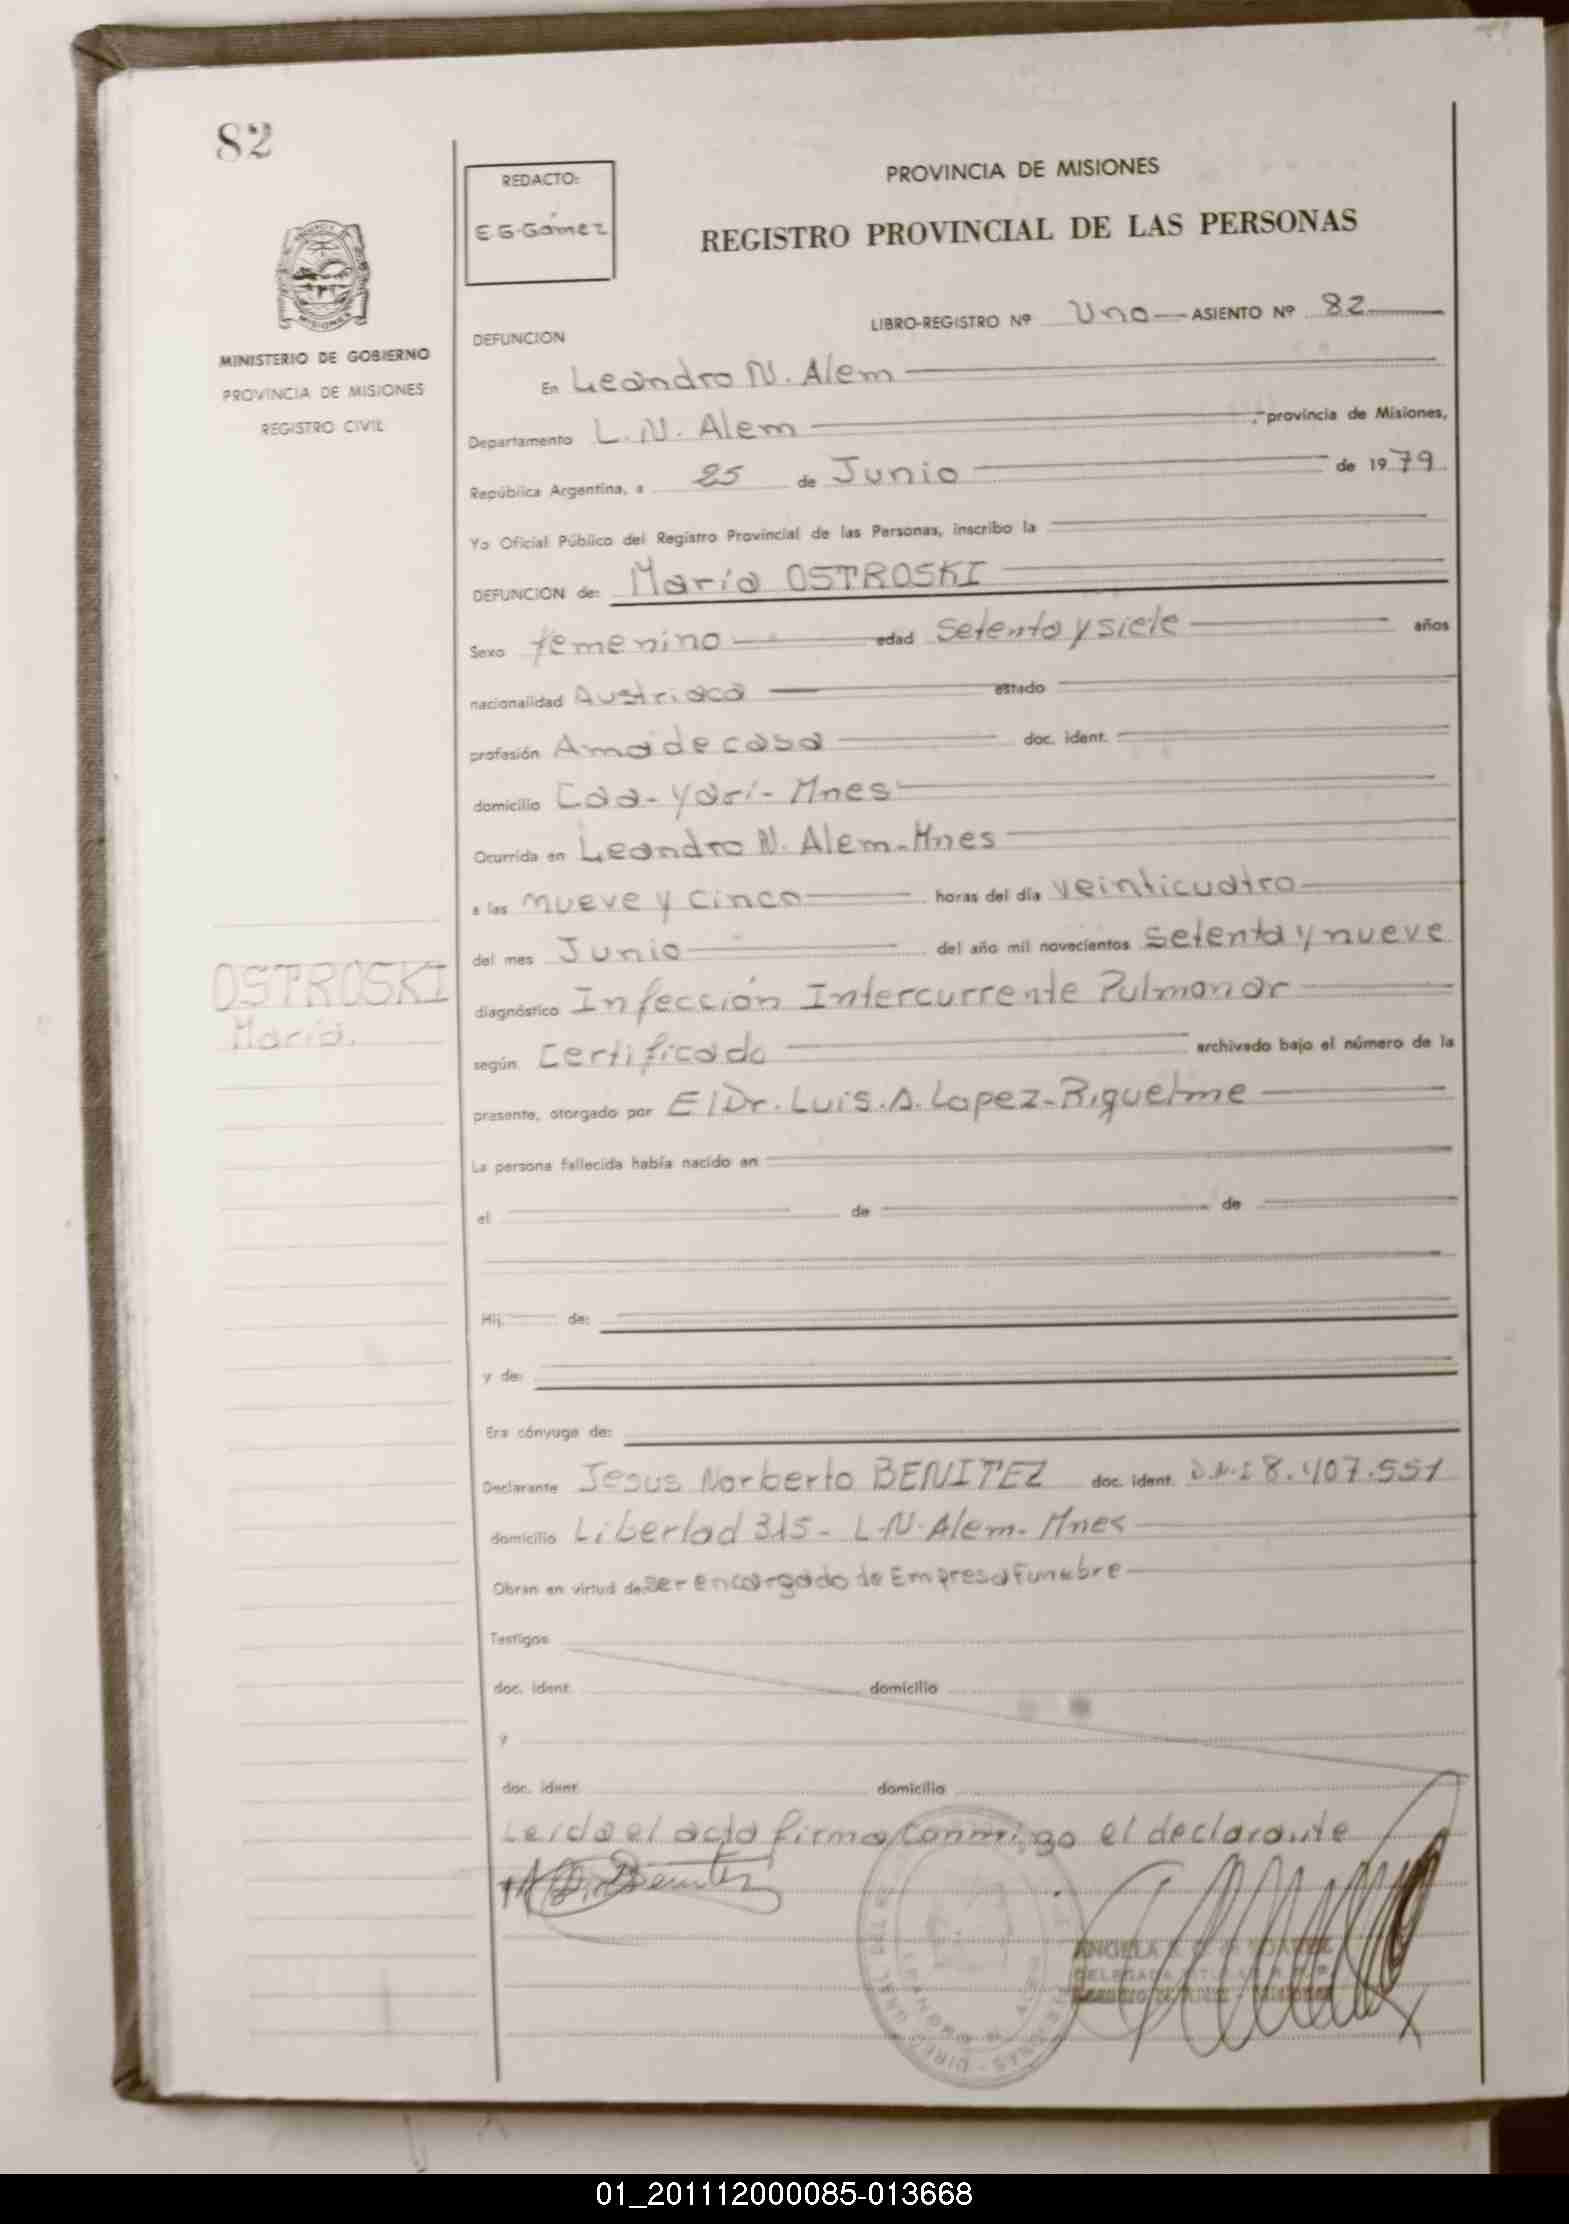 82
REDACTO:
E G. Gómez
PROVINCIA DE MISIONES
REGISTRO PROVINCIAL DE LAS PERSONAS
MISIONES
MINISTERIO DE GOBIERNO
PROVINCIA DE MISIONES
REGISTRO CIVIL
LIBRO-REGISTRO Nº Uno ASIENTO Nº 82
DEFUNCION
En Leandro N. Alem
Departamento L.N. Alem, provincia de Misiones,
República Argentina, a 25 de Junio de 1979
Yo Oficial Público del Registro Provincial de las Personas, inscribo la
DEFUNCION de: María OSTROSKI
Sexo femenino edad Setenta y siete años
nacionalidad Austriaca estado
profesión Ama de casa doc. ident.
domicilio Caa-Yarí-Mnes
Ocurrida en Leandro N. Alem-Mnes
a las nueve y cinco horas del día veinticuatro
del mes Junio del año mil novecientos setenta y nueve
OSTROSKI
María.
diagnóstico Infección Intercurrente Pulmonar
según Certificado archivado bajo el número de la
presente, otorgado por El Dr. Luis. A. Lopez-Riquelme
La persona fallecida había nacido en
el de de
Hij de:
y de:
Era cónyuge de:
Declarante Jesus Norberto BENITEZ doc. ident. D.N.I 8.407.551
domicilio Libertad 315- L-N-Alem-Mnes
Obran en virtud de ser encargado de Empresa Funebre
Testigos
doc. ident. domicilio
y
doc. ident. domicilio
Leída el acta firma conmigo el declarante
Benitez
ANGELA
DELEGADA
01_201112000085-013668